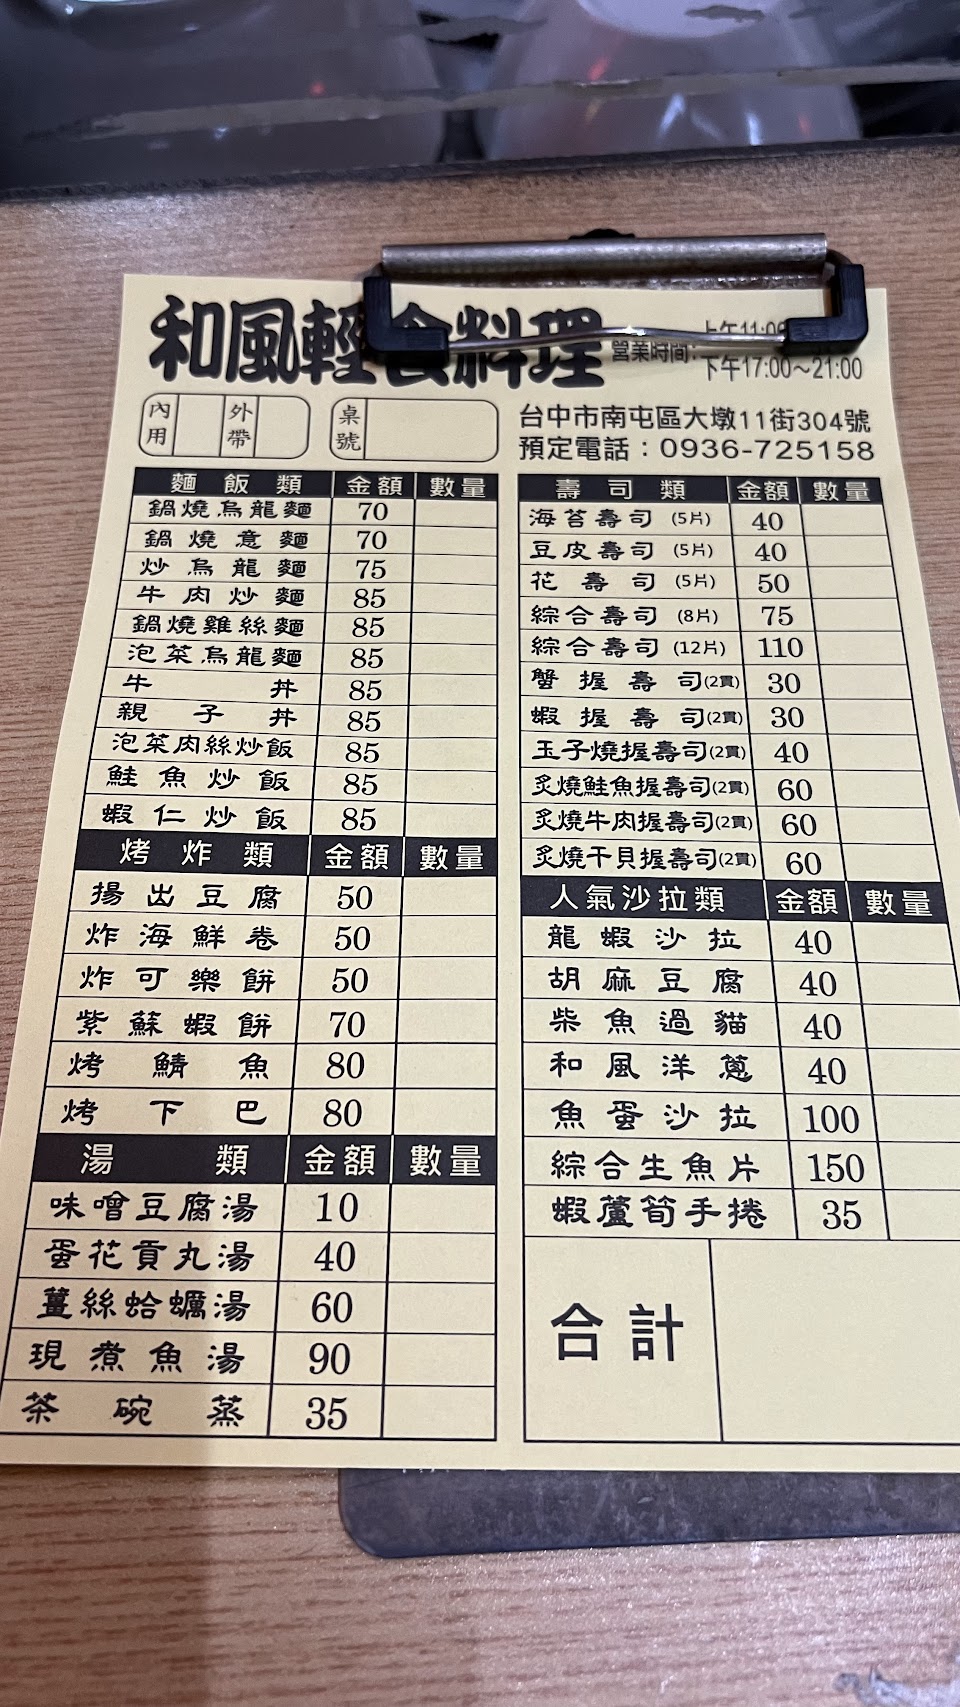 和風輕食料理
營業時間:
下午17:00～21:00
內用 外帶 桌號
台中市南屯區大墩11街304號
預定電話：0936-725158
麵飯類 金額 數量
鍋燒烏龍麵 70
鍋燒意麵 70
炒烏龍麵 75
牛肉炒麵 85
鍋燒雞絲麵 85
泡菜烏龍麵 85
牛丼 85
親子丼 85
泡菜肉絲炒飯 85
鮭魚炒飯 85
蝦仁炒飯 85
烤炸類 金額 數量
揚出豆腐 50
炸海鮮卷 50
炸可樂餅 50
紫蘇蝦餅 70
烤鯖魚 80
烤下巴 80
湯類 金額 數量
味噌豆腐湯 10
蛋花貢丸湯 40
薑絲蛤蠣湯 60
現煮魚湯 90
茶碗蒸 35
壽司類 金額 數量
海苔壽司(5片) 40
豆皮壽司(5片) 40
花壽司(5片) 50
綜合壽司(8片) 75
綜合壽司(12片) 110
蟹握壽司(2貫) 30
蝦握壽司(2貫) 30
玉子燒握壽司(2貫) 40
炙燒鮭魚握壽司(2貫) 60
炙燒牛肉握壽司(2貫) 60
炙燒干貝握壽司(2貫) 60
人氣沙拉類 金額 數量
龍蝦沙拉 40
胡麻豆腐 40
柴魚過貓 40
和風洋蔥 40
魚蛋沙拉 100
綜合生魚片 150
蝦蘆筍手捲 35
合計